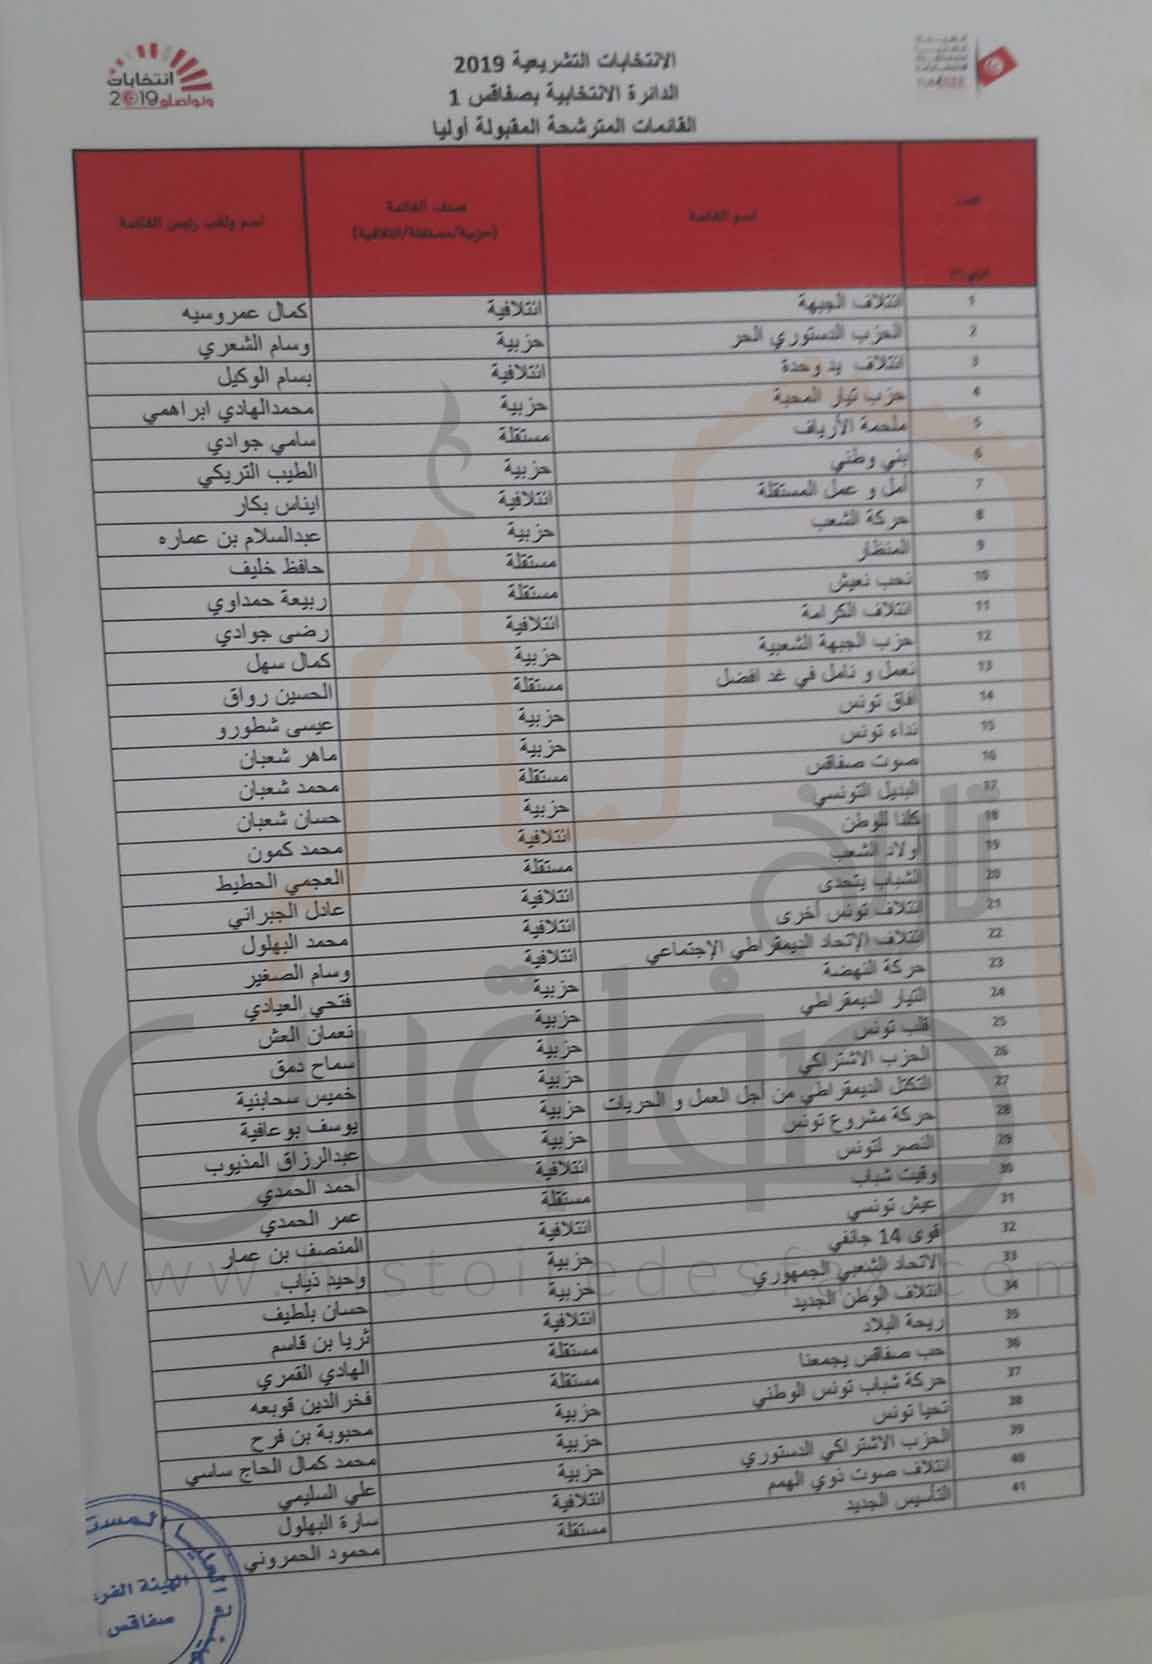 انتخابات
ونواصلو 2019
الانتخابات التشريعية 2019
الدائرة الانتخابية بصفاقس 1
القائمات المترشحة المقبولة أوليا
اسم القائمة صنف القائمة (حزبية/مستقلة/ائتلافية) اسم ولقب رئيس القائمة
1 ائتلاف الجبهة ائتلافية كمال عمروسيه
2 الحزب الدستوري الحر حزبية وسام الشعري
3 ائتلاف يد وحدة ائتلافية بسام الوكيل
4 حزب تيار المحبة حزبية محمدالهادي ابراهمي
5 ملحمة الأرياف مستقلة سامي جوادي
6 بني وطني حزبية الطيب التريكي
7 أمل و عمل المستقلة ائتلافية ايناس بكار
8 حركة الشعب حزبية عبدالسلام بن عماره
9 المنظار مستقلة حافظ خليف
10 نحب نعيش مستقلة ربيعة حمداوي
11 ائتلاف الكرامة ائتلافية رضى جوادي
12 حزب الجبهة الشعبية حزبية كمال سهل
13 نعمل و نامل في غد افضل مستقلة الحسين رواق
14 افاق تونس حزبية عيسى شطورو
15 نداء تونس حزبية ماهر شعبان
16 صوت صفاقس مستقلة محمد شعبان
17 البديل التونسي حزبية حسان شعبان
18 كلنا للوطن ائتلافية محمد كمون
19 أولاد الشعب مستقلة العجمي الحطيط
20 الشباب يتحدى ائتلافية عادل الجبراني
21 ائتلاف تونس أخرى ائتلافية محمد البهلول
22 ائتلاف الإتحاد الديمقراطي الإجتماعي ائتلافية وسام الصغير
23 حركة النهضة حزبية فتحي العيادي
24 التيار الديمقراطي حزبية نعمان العش
25 قلب تونس حزبية سماح دمق
26 الحزب الاشتراكي حزبية خميس سحابنية
27 التكتل الديمقراطي من أجل العمل و الحريات حزبية يوسف بوعافية
28 حركة مشروع تونس حزبية عبدالرزاق المذيوب
29 النصر لتونس ائتلافية أحمد الحمدي
30 وقيت شباب مستقلة عمر الحمدي
31 عيش تونسي ائتلافية المنصف بن عمار
32 قوى 14 جانفي حزبية وحيد ذياب
33 الاتحاد الشعبي الجمهوري حزبية حسان بلطيف
34 ائتلاف الوطن الجديد ائتلافية ثريا بن قاسم
35 ريحة البلاد مستقلة الهادي القمري
36 حب صفاقس يجمعنا مستقلة فخرالدين قوبعه
37 حركة شباب تونس الوطني حزبية محبوبة بن فرح
38 تحيا تونس حزبية محمد كمال الحاج ساسي
39 الحزب الاشتراكي الدستوري حزبية علي السليمي
40 ائتلاف صوت ذوي الهمم ائتلافية سارة البهلول
41 التأسيس الجديد مستقلة محمود الحمروني
تاريخ صفاقس
www.histoiredesfax.com
صفاقس